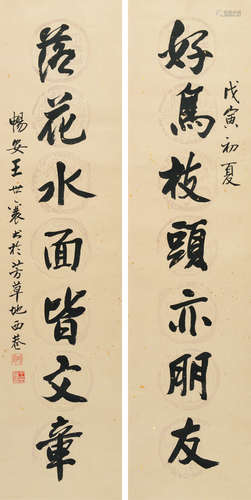 戊寅初夏
好鳥枝頭亦朋友
落花水面皆文章
暢安王世襄書於芳草地西巷